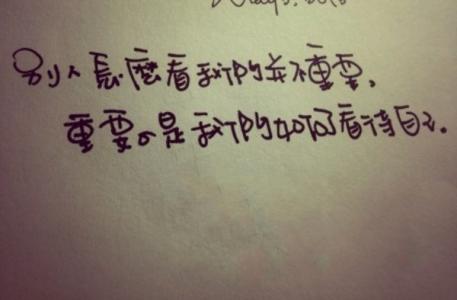 别人怎麼看我們并不重要，
重要的是我們如何看待自己。